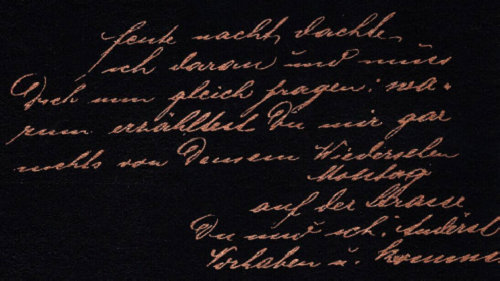 heute nacht dachte
ich daran und muss
Dich nun gleich fragen: wa-
rum erzähltest Du mir gar
nichts von Deinem Wiedersehen
Montag
auf der Strasse
Du und ich:
Vorhaben u. komme